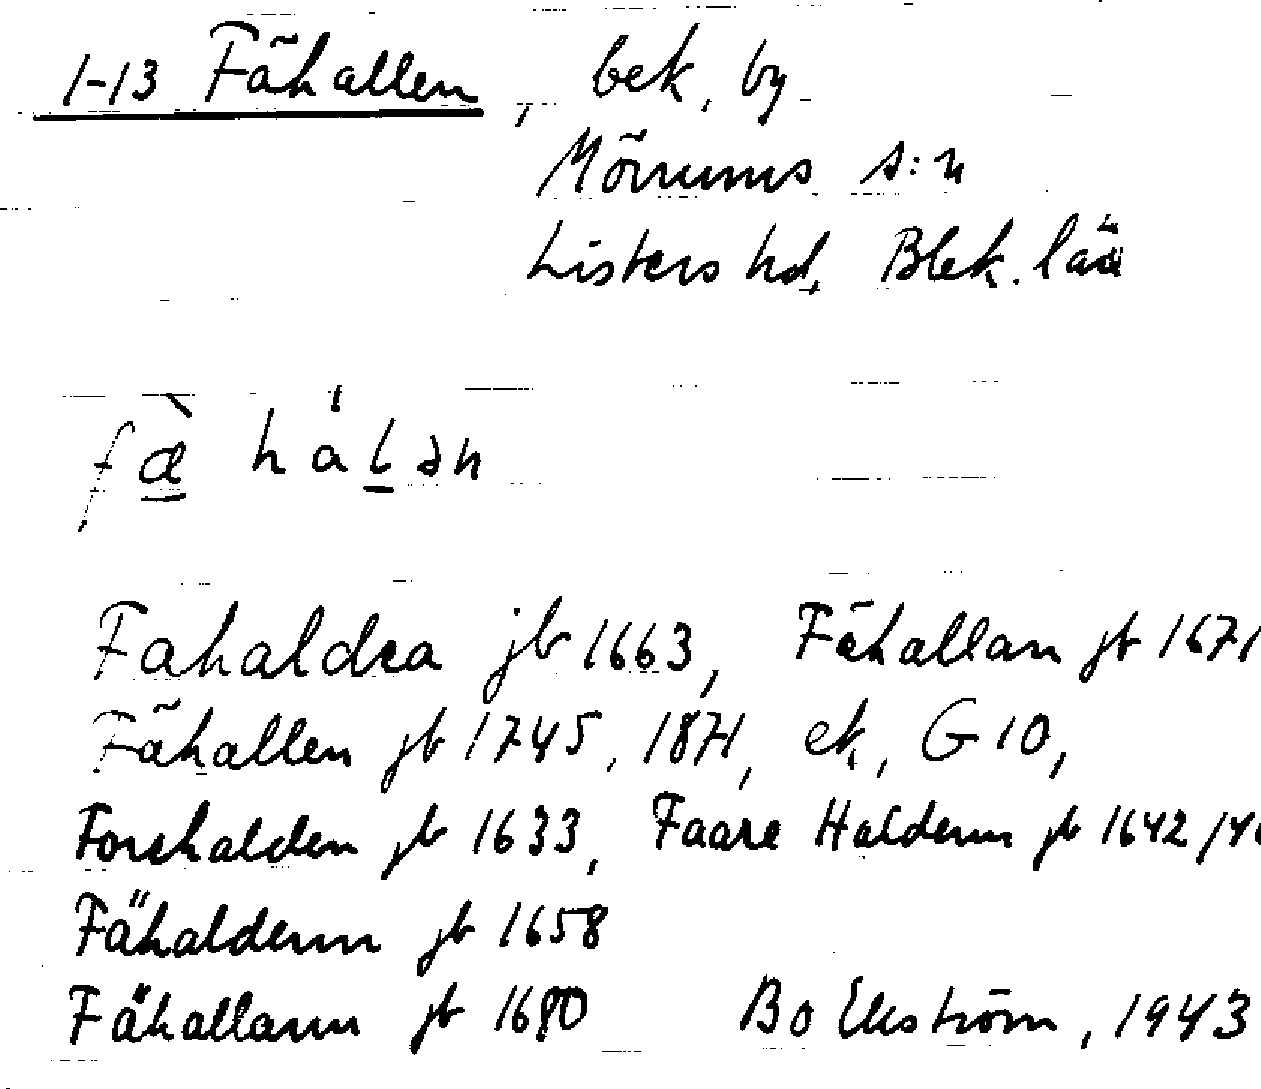 1-13 Fähallen, bek, by
Mörrums s:n
Listers hd, Blek. län
fæ̀ hálən
Fahaldea jb 1663, Fähallan jb 1671
Fähallen jb 1745, 1871, ek, G 10,
Forehalden jb 1633, Faare Haldenn jb 1642/
Fähaldenn jb 1658
Fähallann jb 1680 Bo Ekström, 1943